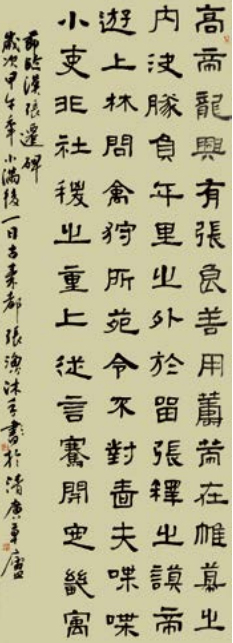 高帝龍興有張良善用籌策在帷幕之
内決勝負千里之外於留張釋之謨帝
遊上林問禽狩所苑令不對嗇夫喋喋
小吏非社稷之重上從言騫開定畿寓
節臨漢張遷碑
歲次甲午年小滿後一日古都張漁沐手書於清廣草廬